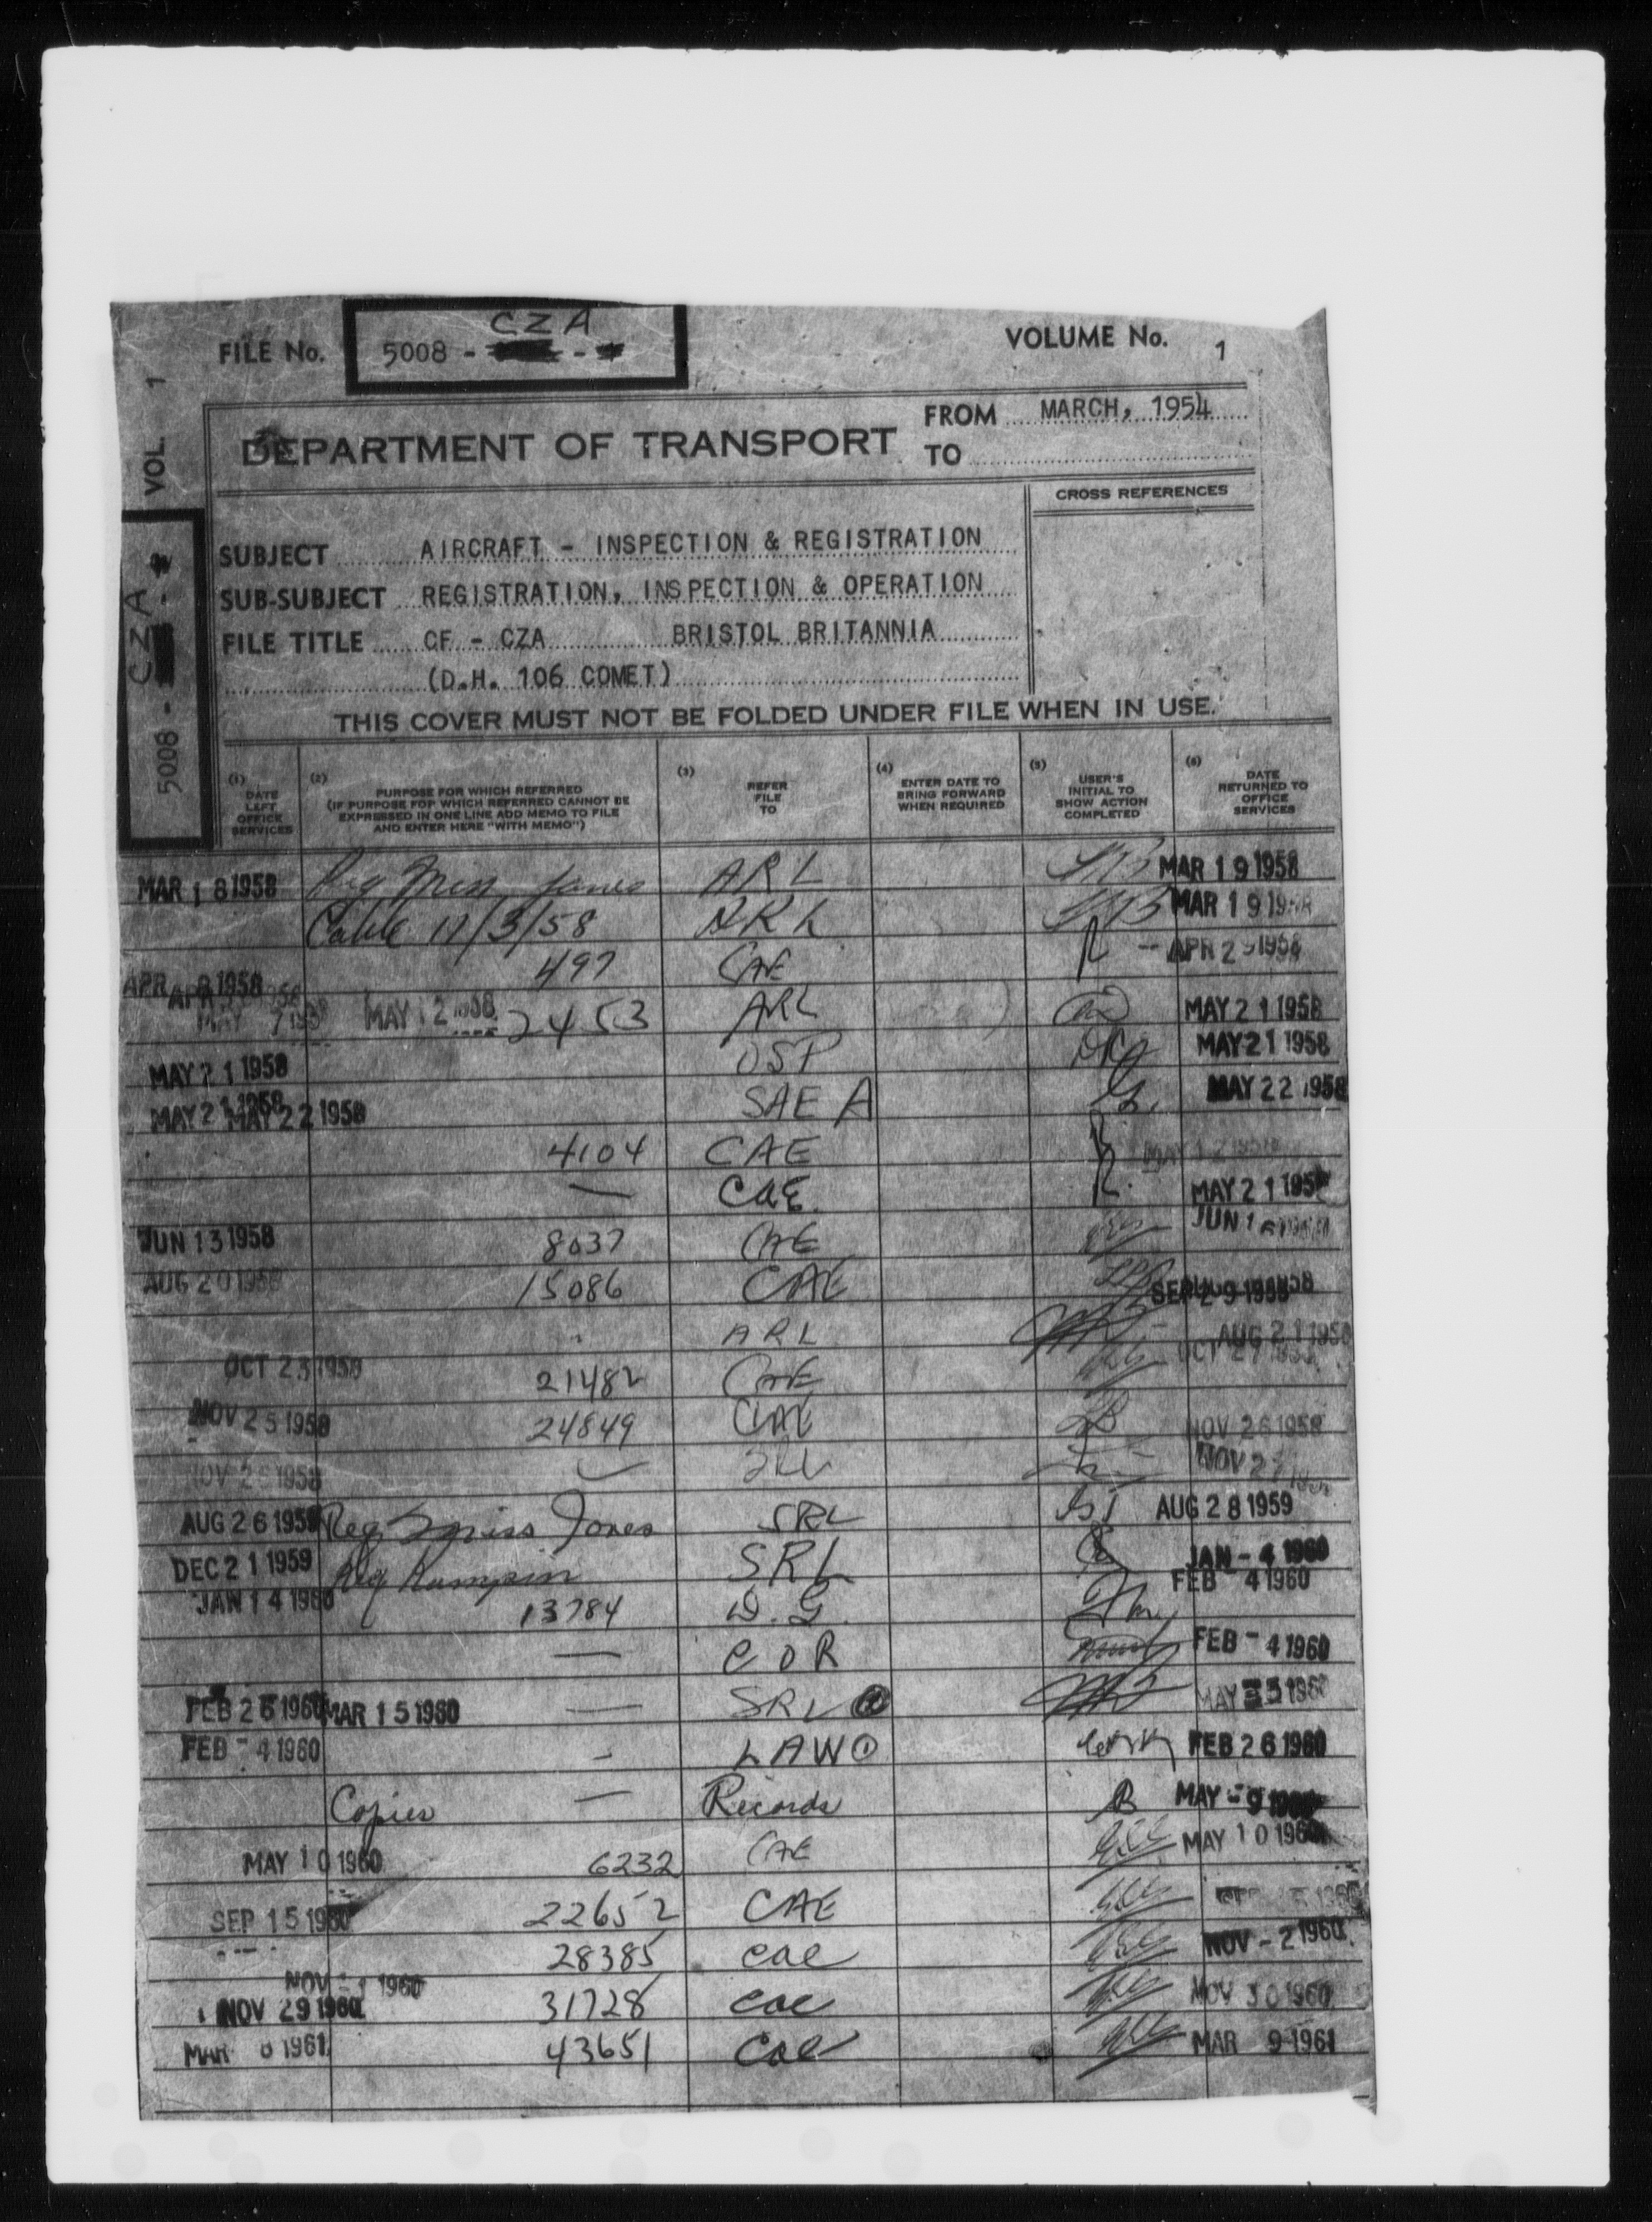 CZA
FILE No. 5008 -
VOLUME No. 1
VOL. 1
5008 - CZA
DEPARTMENT OF TRANSPORT
FROM MARCH, 1954
TO
CROSS REFERENCES
SUBJECT AIRCRAFT - INSPECTION & REGISTRATION
SUB-SUBJECT REGISTRATION, INSPECTION & OPERATION
FILE TITLE CF - CZA BRISTOL BRITANNIA
(D.H. 106 COMET)
THIS COVER MUST NOT BE FOLDED UNDER FILE WHEN IN USE.
(1) DATE LEFT OFFICE SERVICES
(2) PURPOSE FOR WHICH REFERRED (IF PURPOSE FOR WHICH REFERRED CANNOT BE EXPRESSED IN ONE LINE ADD MEMO TO FILE AND ENTER HERE "WITH MEMO")
(3) REFER FILE TO
(4) ENTER DATE TO BRING FORWARD WHEN REQUIRED
(5) USER'S INITIAL TO SHOW ACTION COMPLETED
(6) DATE RETURNED TO OFFICE SERVICES
MAR 18 1958 Req Miss Jones ARL MAR 19 1958
Cable 11/3/58 ARL MAR 19
497 CAE APR 2 1958
APR 1958
MAY 7 MAY 12 2453 ARL MAY 21 1958
MAY 21 1958 DSP MAY 21 1958
MAY 21 1958 MAY 22 1958 SAE A MAY 22 1958
4104 CAE MAY 12
— CAE MAY 21 195
JUN 13 1958 8037 CAE JUN 16
AUG 20 1958 15086 CAE
ARL AUG 21 195
OCT 23 1958 21482 CAE OCT 27
NOV 25 1958 24849 CAE NOV 26 1958
NOV 2 1958 NOV 2
AUG 26 1959 Req Miss Jones SRL AUG 28 1959
DEC 21 1959 Req SRL JAN - 4 1960
FEB 4 1960
JAN 14 1960 13784 D.G.
— COR FEB - 4 1960
FEB 26 1960 MAR 15 1960 — SRL MAY 1960
FEB - 4 1960 - LAW ① FEB 26 1960
Copies — Records MAY - 9 1960
MAY 10 1960 6232 CAE MAY 10 1960
SEP 15 1960 22652 CAE
28385 CAE NOV - 2 1960
NOV - 1 1960
NOV 29 1960 31728 CAE NOV 30 1960
MAR 1961 43651 CAE MAR 9 1961